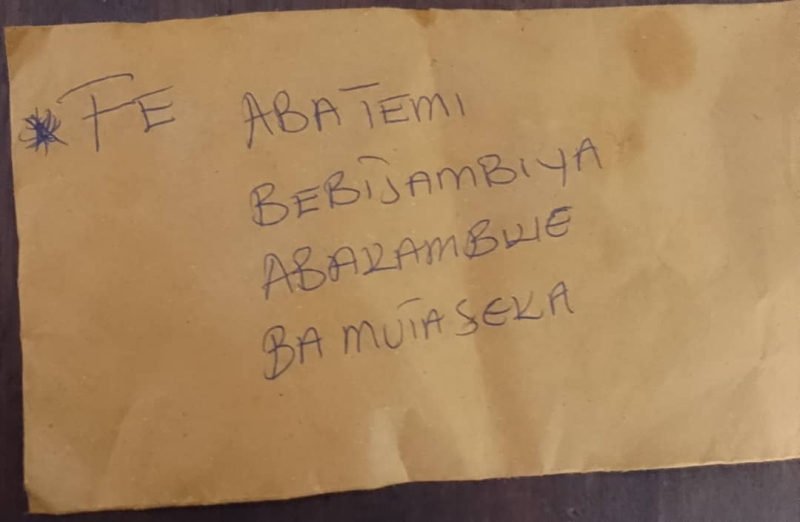 * FE ABATEMI
BEBIJAMBIYA
ABAKAMBWE
BA MUTASEKA